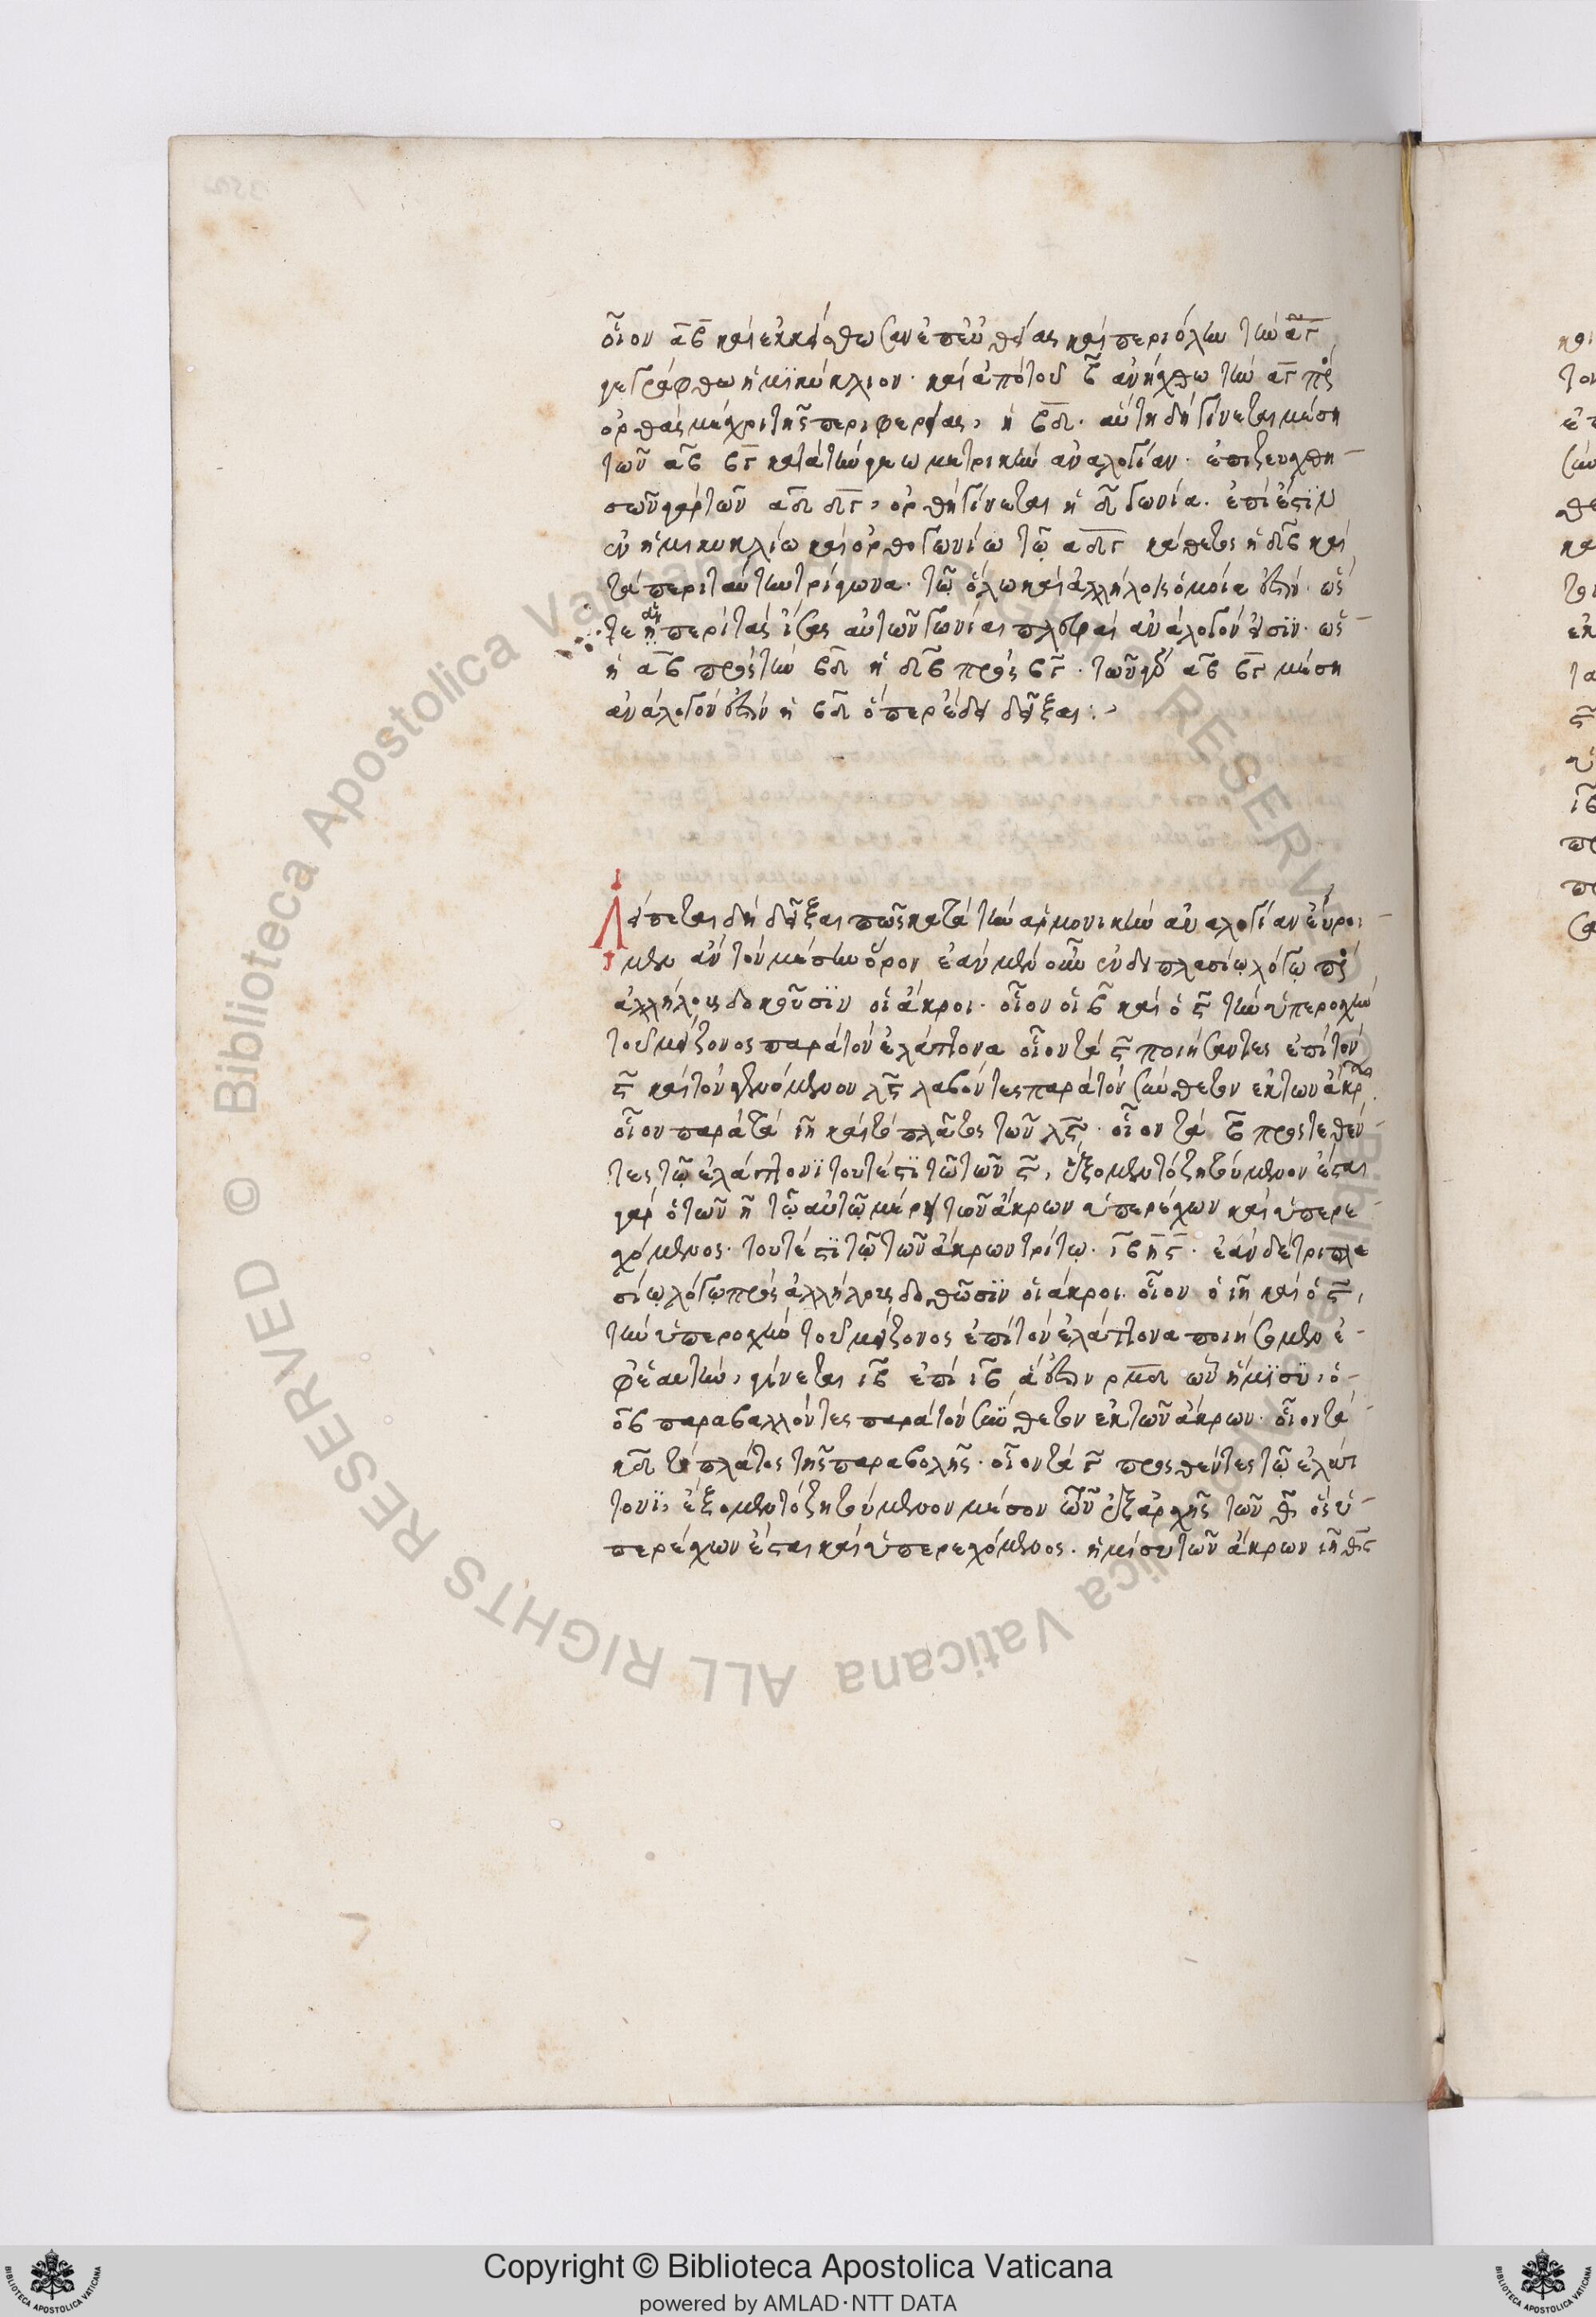 οἷον α̅β̅ καὶ ἐκκείσθωσαν ἐπευθείας καὶ περι ὅλην τὴν α̅γ̅
γεγράφθω ἡμϊκύκλιον· καὶ ἀπὸ τοῦ β̅ ἀνήχθω τὴν α̅γ̅ πρὸς
ὀρθὰς μέχρι τῆς περιφερείας, ἡ β̅δ̅· αὕτη δὴ γίνεται μέση
τῶν α̅β̅ β̅γ̅ κατὰ τὴν γεωμετρικὴν ἀναλογίαν· ἐπιζευχθη-
σῶν γὰρ τῶν α̅δ̅ δ̅γ̅, ὀρθὴ γίνεται ἡ δ̅ γωνία. ἐπὶ ἐστϊν
ἐν ἡμικυκλίω καὶ ὀρθογωνίω τῶ α̅δ̅γ̅ κάθετος ἡ δ̅β̅ καὶ
τὰ περὶ ταύτην τρίγωνα· τῶ ὅλω καὶ ἀλλήλοις ὅμοια ἐστίν· ὥσ
τε αἱ περὶ τὰς ἴσας αὐτῶν γωνίας πλευραὶ ἀνάλογόν εἰσϊν· ὡς
ἡ α̅β̅ πρὸς τὴν β̅δ̅ ἡ δ̅β̅ πρὸς β̅γ̅· τῶν γὰρ α̅β̅ β̅γ̅ μέση
ἀνάλογόν ἐστὶν ἡ β̅δ̅ ὅπερ ἔδει δεῖξαι:
Λείπεται δὴ δεῖξαι πῶς κατὰ τὴν ἁρμονικὴν ἀναλογίαν εὕροι-
μεν ἂν τὸν μέσην ὅρον ἐὰν μὲν οὖν ἐν διπλασίῳ λόγῳ πρὸς
ἀλλήλους δοκοῦσϊν οἱ ἄκροι· οἷον οἱ ι̅β̅ καὶ ὁ ϛ̅ τὴν ὑπεροχὴν
τοῦ μείζονος παρὰ τὸν ἐλάττονα οἷον τὰ ϛ̅ ποιήσαντες ἐπὶ τὸν
ϛ̅ καὶ τὸν γενόμενον λ̅ϛ̅ λαβόντες παρὰ τὸν σύνθετον ἐκ τῶν ἄκρων
οἷον παρὰ τὰ ι̅η̅ καὶ τὸ πλᾶτος τῶν λ̅ϛ̅· οἷον τὰ β̅ προστεθέν
τες τῶ ἐλάττονϊ τουτέστϊ τῶ τῶν ϛ̅, ἕξομεν τὸ ζητούμενον ἔσται
γὰρ ὁ τῶν η̅ τῶ αὐτῶ μέρει τῶν ἄκρων ὑπερέχων καὶ ὑπερε-
χόμενος· τουτέστϊ τῶ τῶν ἄκρων τρίτῳ· ι̅β̅ η̅ ϛ̅· ἐὰν δὲ τριπλα
σίῳ λόγῳ πρὸς ἀλλήλους δοθῶσϊν οἱ ἄκροι· οἷον ὁ ι̅η̅ καὶ ὁ ϛ̅,
τὴν ὑπεροχὴν τοῦ μείζονος ἐπὶ τὸν ἐλάττονα ποιήσομεν ἐ-
φ' ἑαυτὴν, γίνεται ι̅β̅ ἐπὶ ι̅β̅ ἅ ἐστιν ρ̅μ̅δ̅ ὧν ἥμϊσϋ, ὁ-
ο̅β̅ παραβαλλόντες παρὰ τὸν σύνθετον ἐκ τῶν ἄκρων· οἷον τὰ
κ̅δ̅ τὸ πλάτος τῆς παραβολῆς· οἷον τὰ γ̅ προσθέντες τῶ ἐλάτ
τονϊ, ἕξομεν τὸ ζητούμενον μέσον ὧν ἐξαρχῆς τῶν θ̅, ὃς ὑ-
περέχων ἔσται καὶ ὑπερεχόμενος· ἡμίσυ τῶν ἄκρων ι̅η̅ θ̅ ϛ̅
Copyright © Biblioteca Apostolica Vaticana
powered by AMLAD·NTT DATA
© Biblioteca Apostolica Vaticana ALL RIGHTS RESERVED